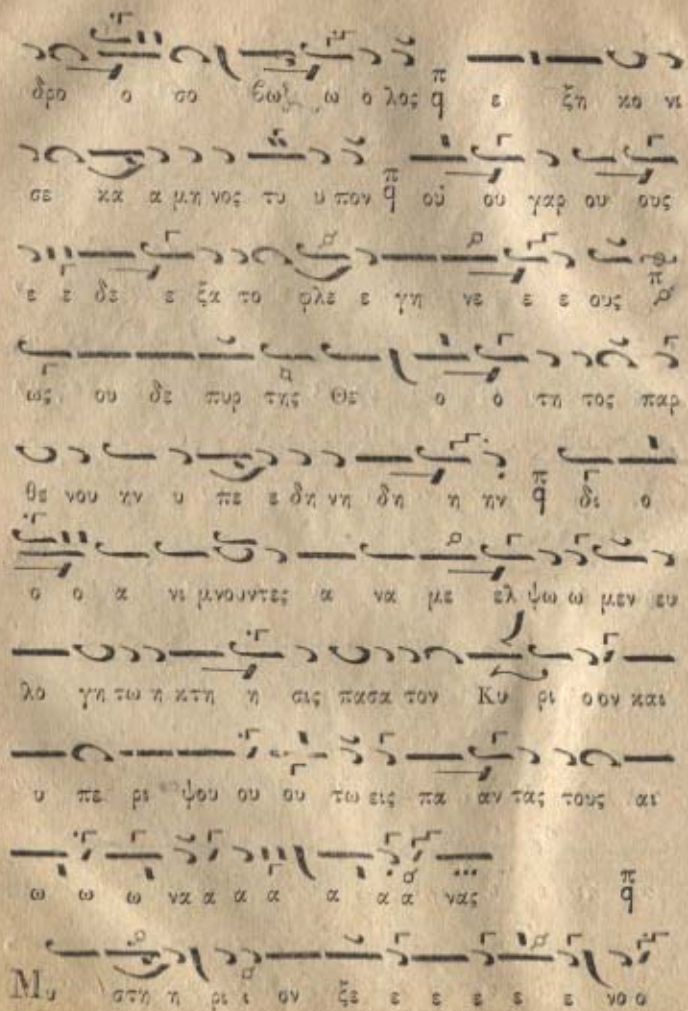 δρο ο σο βω ω ο λος π q ε ξη κο νι
σε κα α μη νος τυ υ πον π q οὐ ου γαρ ου ους
ε ε δε ε ξα το φλε ε γη νε ε ε ους π
ως ου δε πυρ της Θε ο ο τη τος παρ
θε νου ην υ πε ε δη νη δη η ην π q δι ο
ο ο α νι μνουντες α να με ελ ψω ω μεν ευ
λο γη τω η κτη η σις πασα τον Κυ ρι ο ον και
υ πε ρι ψου ου ου τω εις πα αν τας τους αι
ω ω ω να α α α α α α νας π q
Μυ στη η ρι ι ον ξε ε ε ε ε ε νο ο